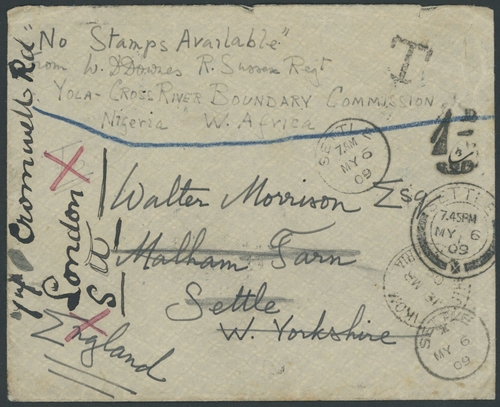 "No Stamps Available"
from W. D. Downes R. Sussex Regt
YOLA-CROSS RIVER BOUNDARY COMMISSION
Nigeria W. Africa
T
SETTLE
7 AM
MY 6
09
Walter Morrison Esq
Malham Tarn
Settle
W. Yorkshire
Cromwell Rd
London
S W
England
SETTLE
7.45PM
MY 6
09
SETTLE
MY 6
09